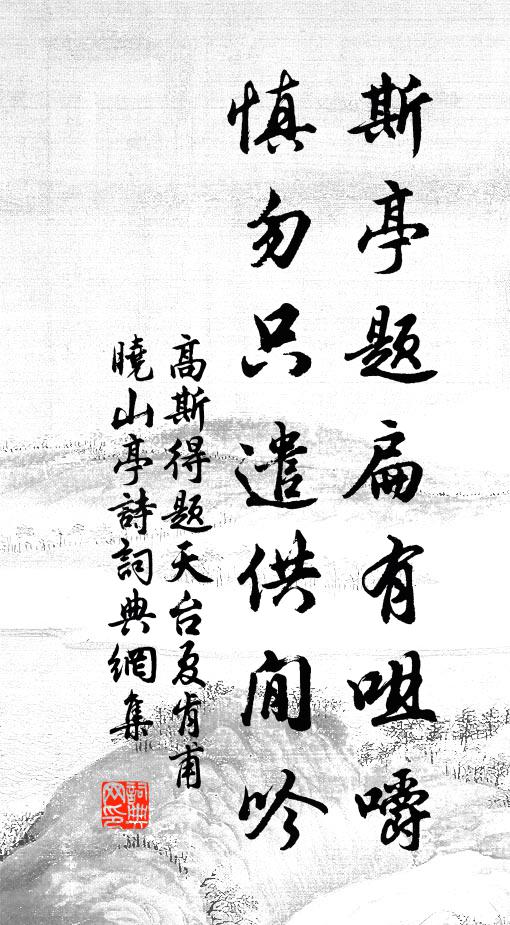 斯亭题扁有咀嚼
慎勿只遣供閒吟
高斯得题天台夏肯甫
曉山亭詩詞典網集
詞典網印